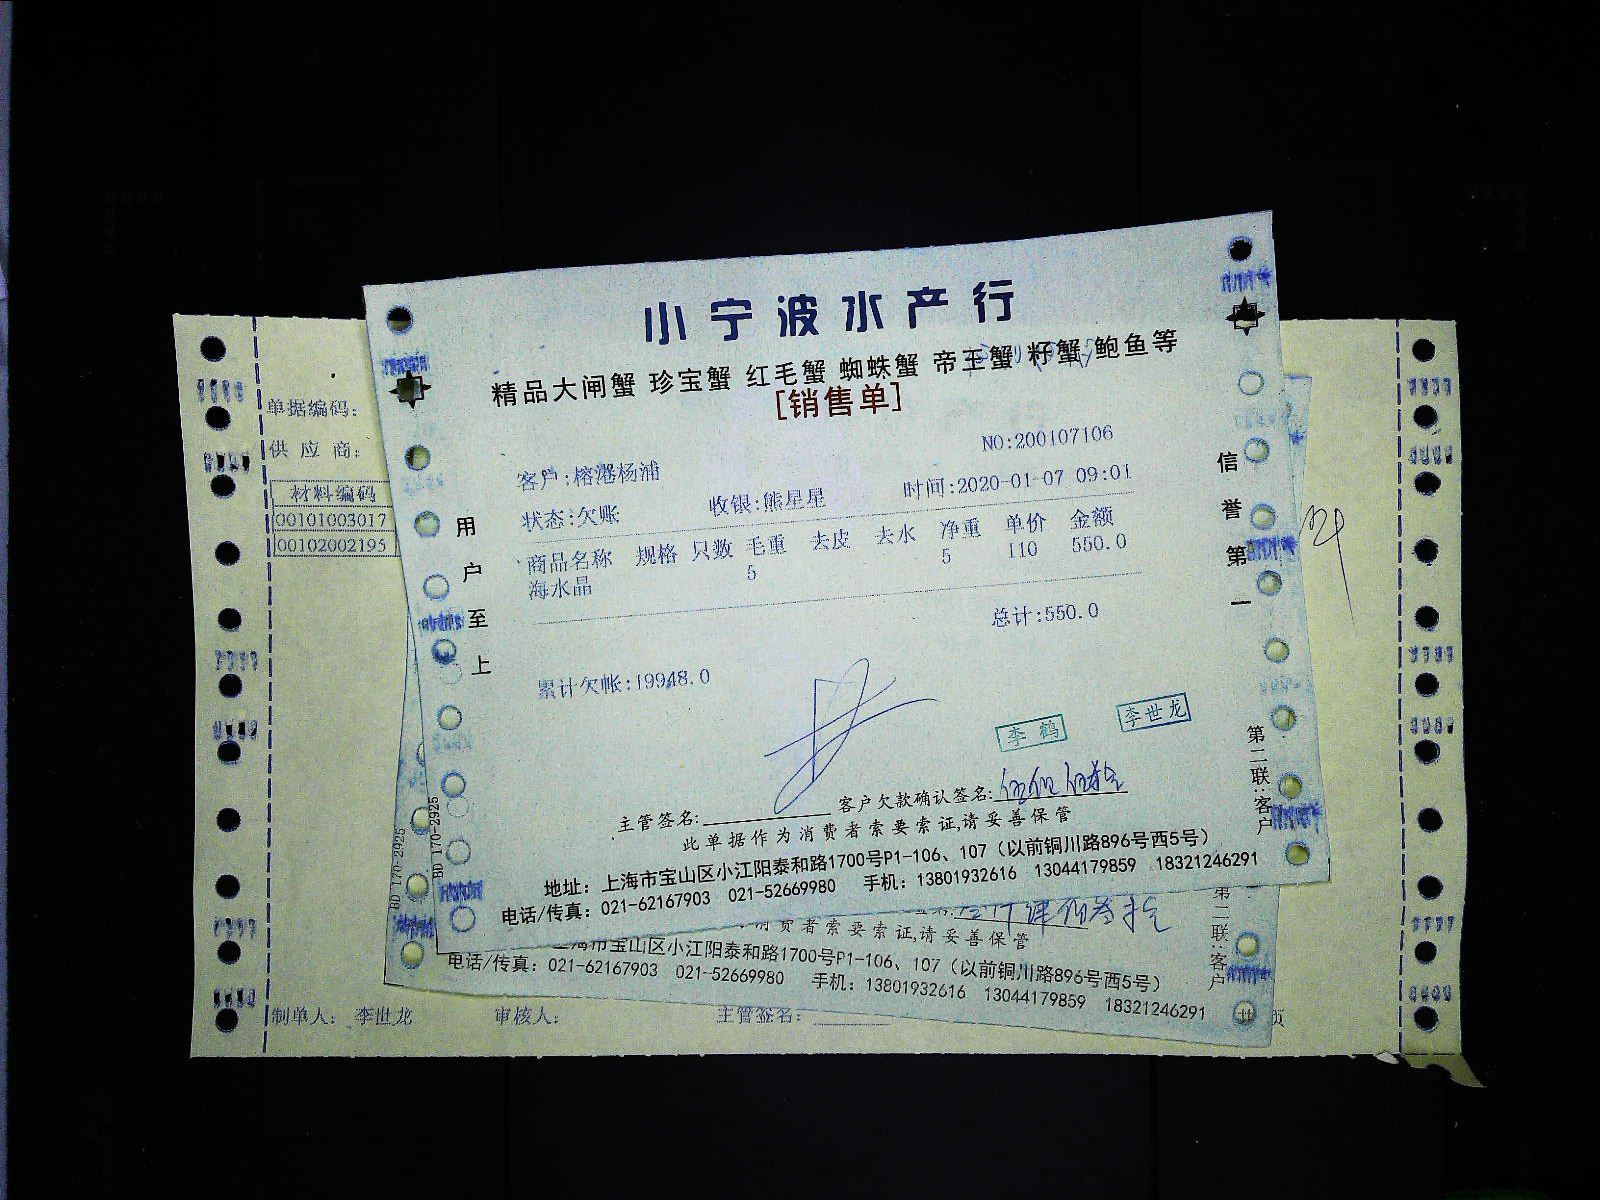 小宁波水产行
精品大闸蟹 珍宝蟹 红毛蟹 蜘蛛蟹 帝王蟹 籽蟹 鲍鱼等
[销售单]
NO:200107106
客户:榕港杨浦
收银:熊星星
时间:2020-01-07 09:01
状态:欠账
商品名称 规格 只数 毛重 去皮 去水 净重 单价 金额
海水晶 5 5 110 550.0
总计:550.0
累计欠帐:19948.0
李鹤
李世龙
主管签名:
客户欠款确认签名:
此单据作为消费者索要索证,请妥善保管
地址：上海市宝山区小江阳泰和路1700号P1-106、107（以前铜川路896号西5号）
电话/传真：021-62167903 021-52669980 手机：13801932616 13044179859 18321246291
用户至上
信誉第一
第二联:客户
BD 170-2925
单据编码：
供应商：
材料编码
00101003017
00102002195
BD 170-2925
消费者索要索证,请妥善保管
上海市宝山区小江阳泰和路1700号P1-106、107（以前铜川路896号西5号）
电话/传真：021-62167903 021-52669980 手机：13801932616 13044179859 18321246291
第二联:客户
制单人：李世龙
审核人：
主管签名：
页